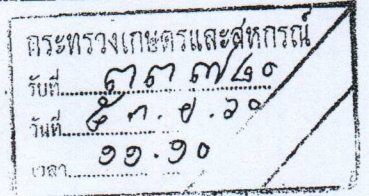 กระทรวงเกษตรและสหกรณ์
รับที่ ๓๓๗๘๐
วันที่ ๕ ก.ย. ๖๐
เวลา ๑๑.๑๐